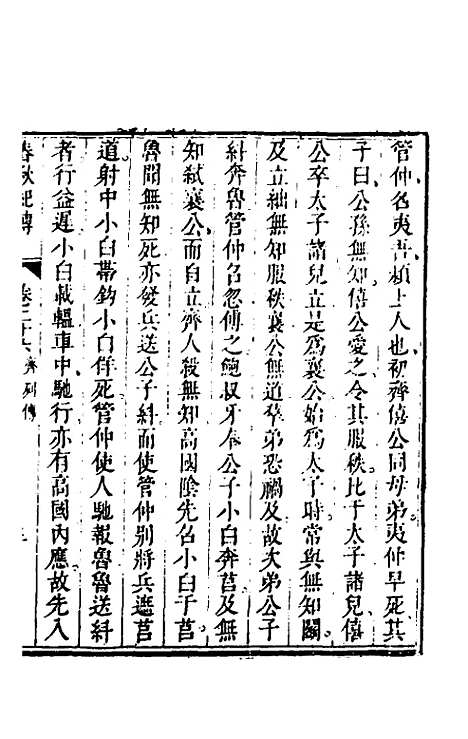 管仲名夷吾潁上人也初齊僖公同母弟夷仲早死其
子曰公孫無知僖公愛之令其服秩比于太子諸兒僖
公卒太子諸兒立是爲襄公始爲太子時常與無知鬬
及立絀無知服秩襄公無道羣弟恐禍及故次弟公子
糾奔魯管仲名忽傅之鮑叔牙奉公子小白奔莒及無
知弑襄公而自立齊人殺無知高國陰先名小白于莒
魯聞無知死亦發兵送公子糾而使管仲別將兵遮莒
道射中小白帶鈎小白佯死管仲使人馳報魯魯送糾
者行益遲小白載轀車中馳行亦有高國内應故先入
春秋紀傳 卷二十六 齊列傳